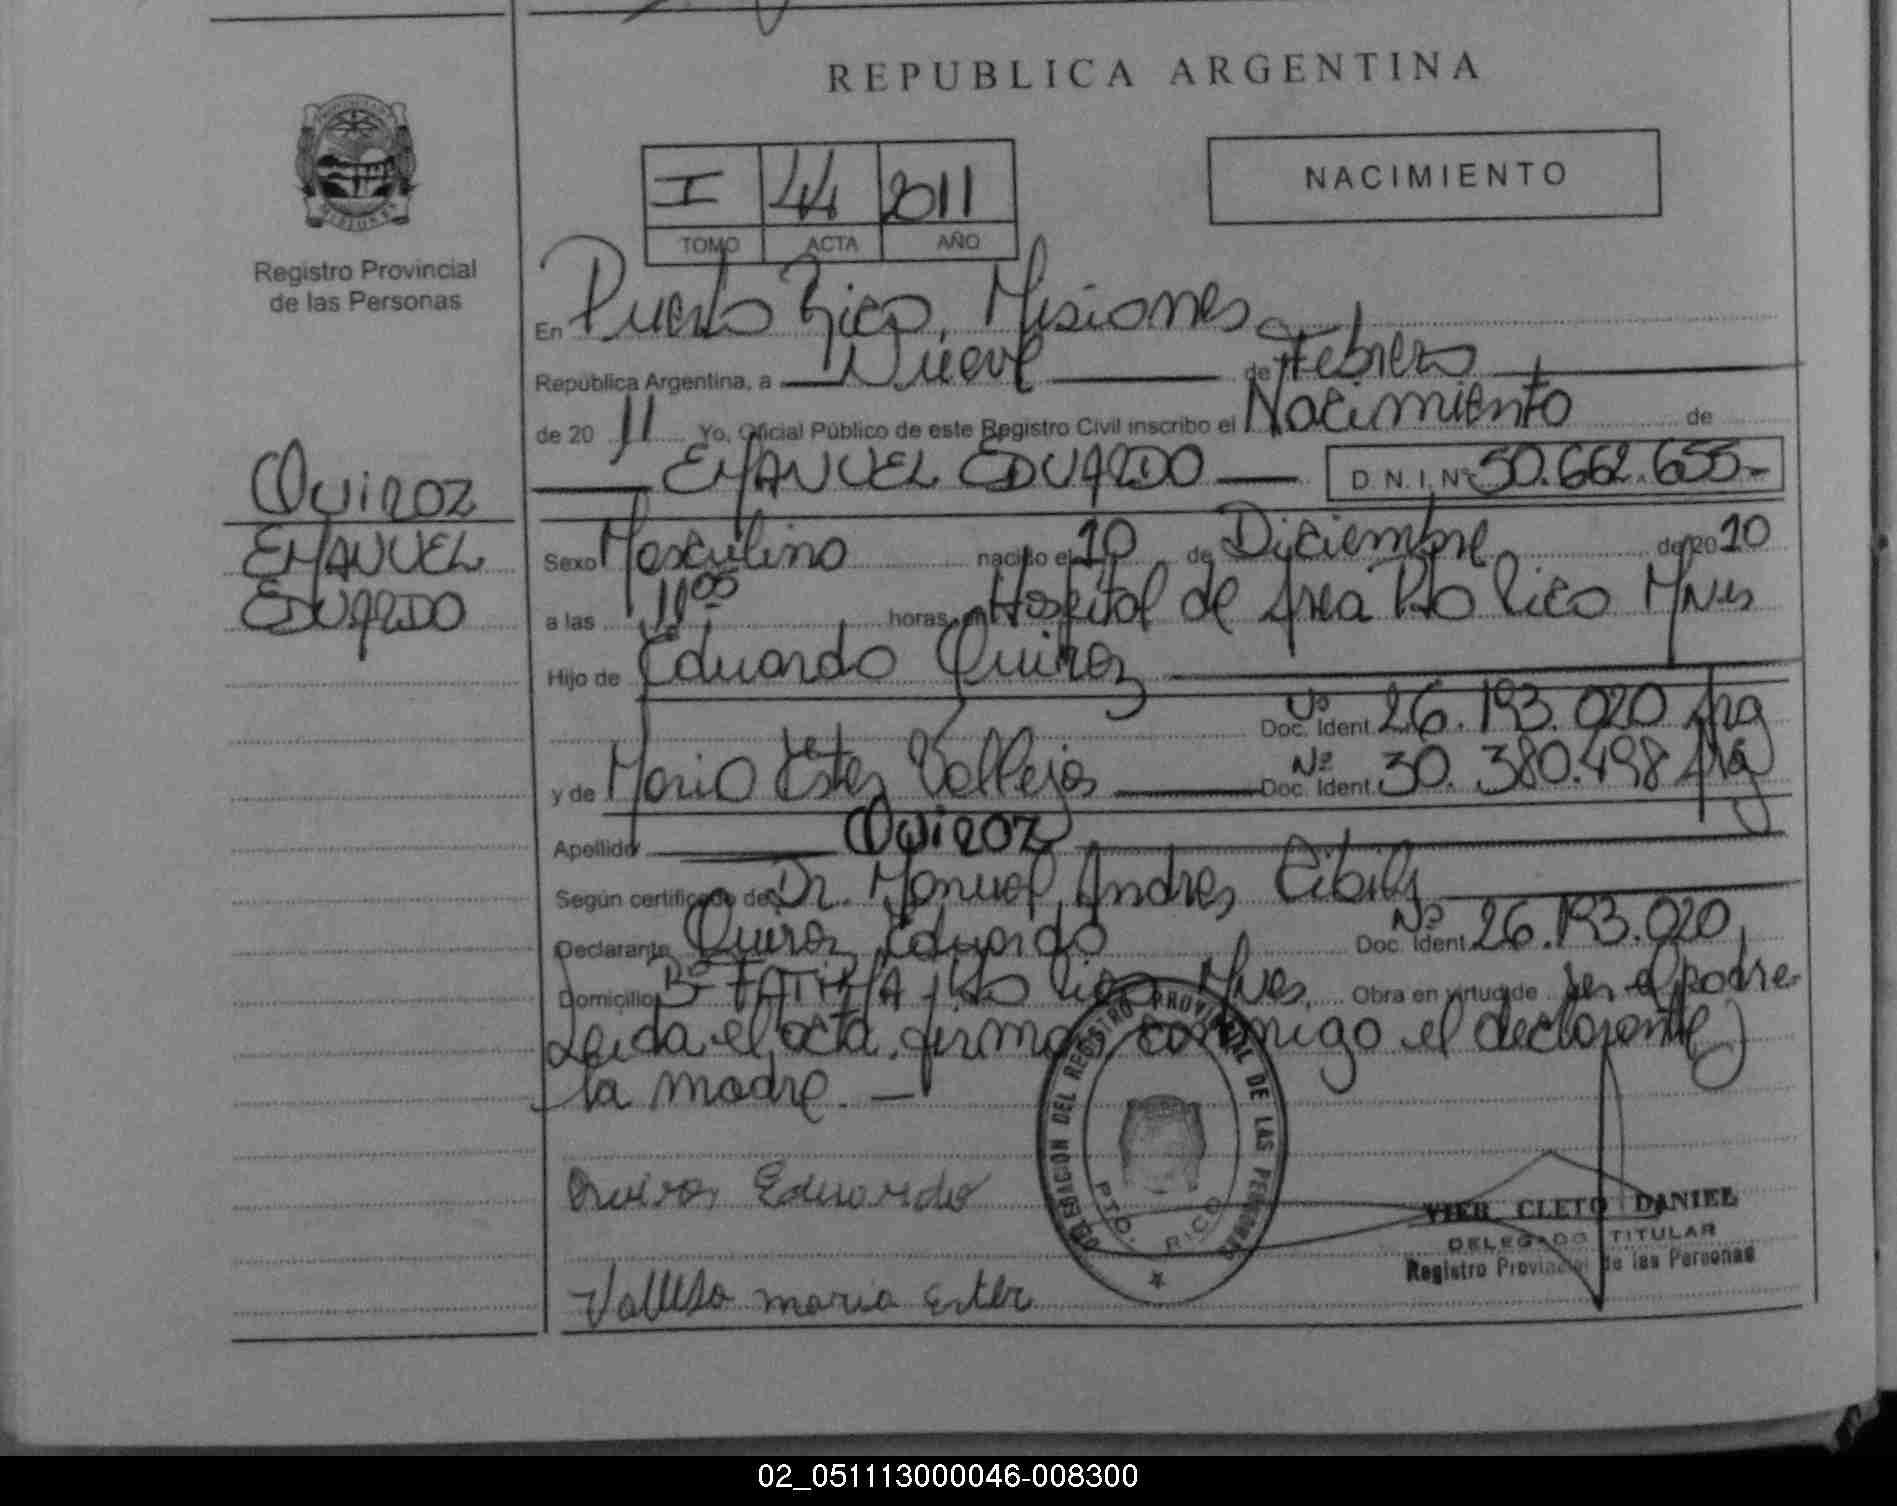 REPUBLICA ARGENTINA
I 44 2011
TOMO ACTA AÑO
NACIMIENTO
Registro Provincial
de las Personas
En Puerto Rico, Misiones
República Argentina, a Nueve de Febrero
de 20 11 Yo, Oficial Público de este Registro Civil inscribo el Nacimiento de
EMANUEL EDUARDO D.N.I. Nº 50.662.655.-
QUIROZ
EMANUEL
EDUARDO
Sexo Masculino nacido el 10 de Diciembre de 20 10
a las 11 00 horas, en Hospital de Area Pto Rico Mnes
Hijo de Eduardo Quiroz
Nº
Doc. Ident. 26.193.020 Arg
y de Maria Ester Vallejos Nº Doc. Ident. 30.380.498 Arg
Apellido QUIROZ
Según certificado de Dr. Manuel Andres Cibils
Declarante Quiroz Eduardo Nº Doc. Ident. 26.193.020
Domicilio Bº FATIMA, Pto Rico Mnes. Obra en virtud de ser el padre.
Leida el acta, firman conmigo el declarante y
la madre. —
DELEGACION DEL REGISTRO PROVINCIAL DE LAS PERSONAS
PTO. RICO
Quiroz Eduardo
VIER CLETO DANIEL
DELEGADO TITULAR
Registro Provincial de las Personas
Vallejo maria ester
02_051113000046-008300